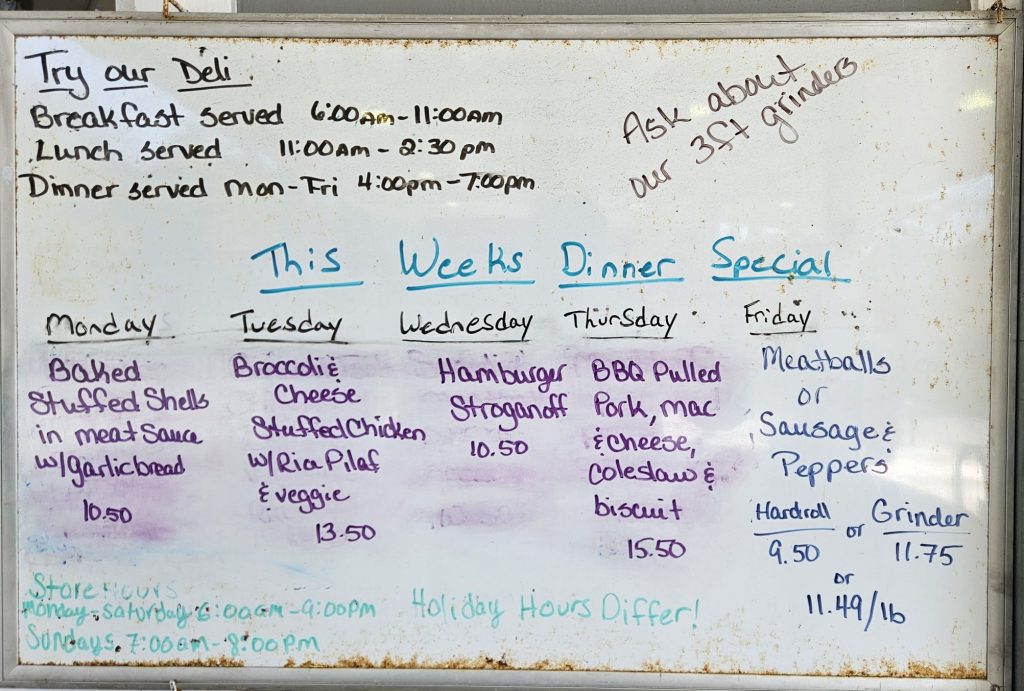 Try our Deli
Breakfast served 6:00am-11:00am
Lunch served 11:00am - 2:30pm
Dinner served mon-Fri 4:00pm-7:00pm
Ask about
our 3ft grinders
This Weeks Dinner Special
Monday
Baked
Stuffed Shells
in meat sauce
w/garlic bread
10.50
Tuesday
Broccoli &
Cheese
Stuffed Chicken
w/Ria Pilaf
& veggie
13.50
Wednesday
Hamburger
Stroganoff
10.50
Thursday
BBQ Pulled
Pork, mac
& cheese,
coleslaw &
biscuit
15.50
Friday
Meatballs
or
Sausage &
Peppers
Hardroll or Grinder
9.50 11.75
or
11.49/lb
Store Hours
monday-saturday 6:00am-9:00pm
Sundays 7:00am-8:00pm
Holiday Hours Differ!